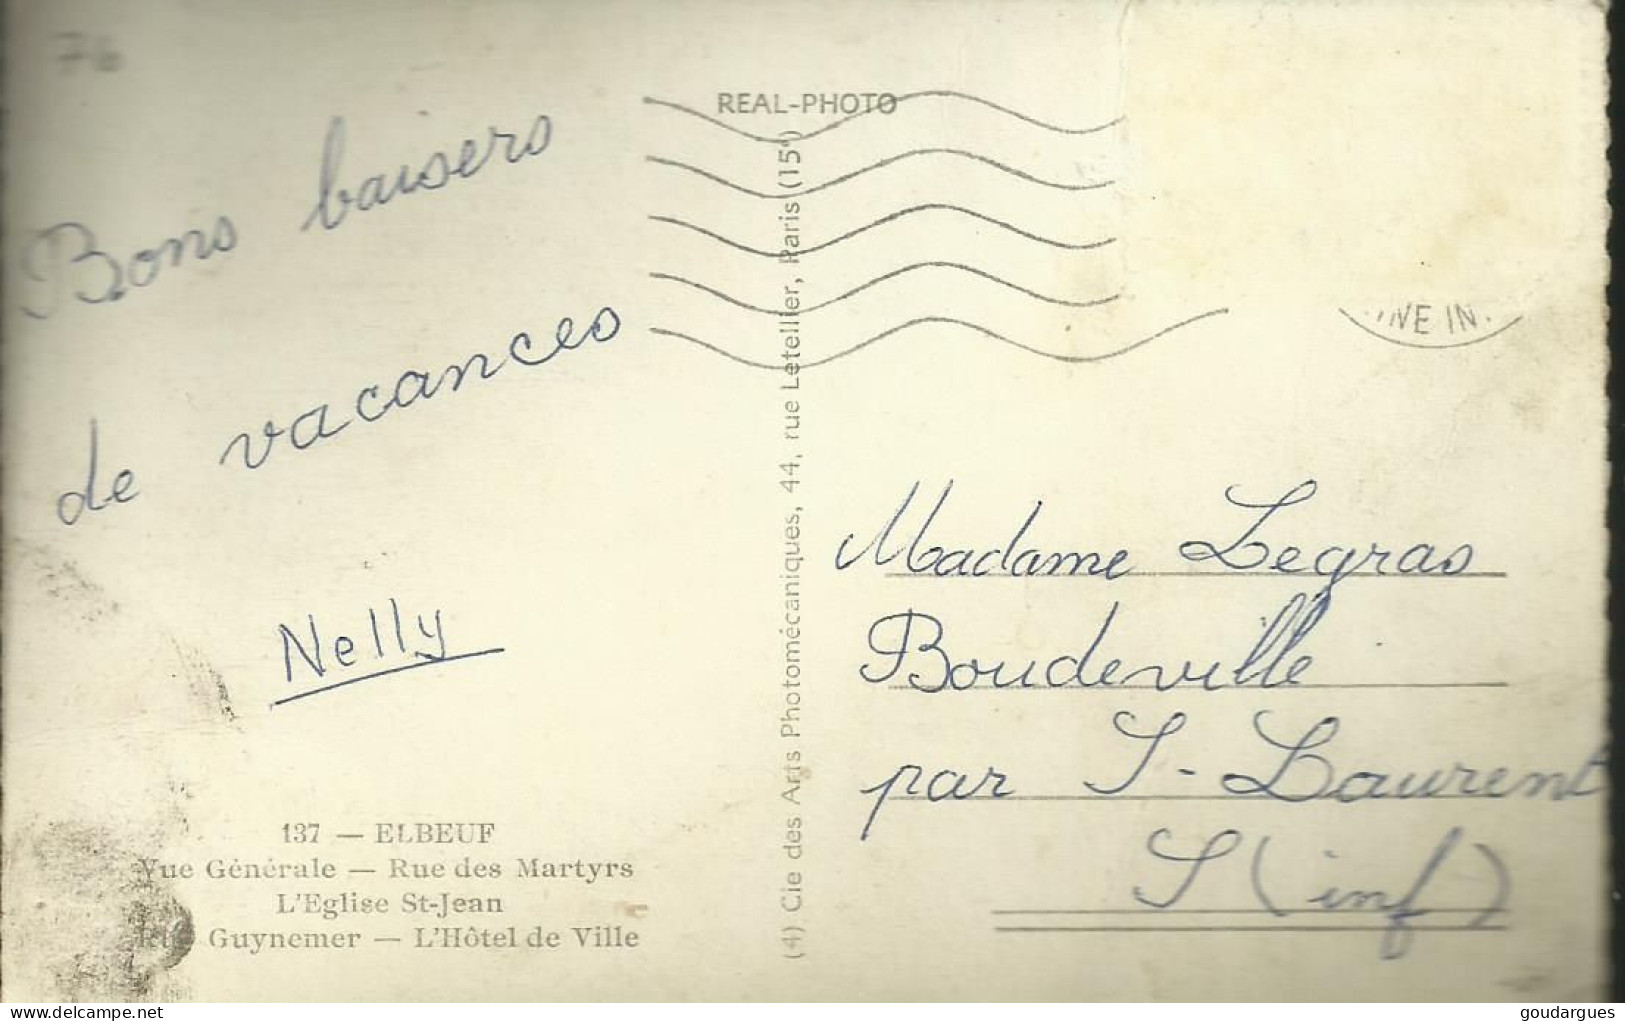 76
REAL-PHOTO
Bons baisers
de vacances
Nelly
137 — ELBEUF
Vue Générale — Rue des Martyrs
L'Eglise St-Jean
Rue Guynemer — L'Hôtel de Ville
(4) Cie des Arts Photomécaniques, 44, rue Letellier, Paris (15e)
NE IN
Madame Legras
Boudeville
par S-Laurent
S (inf)
Delcampe.net
goudargues